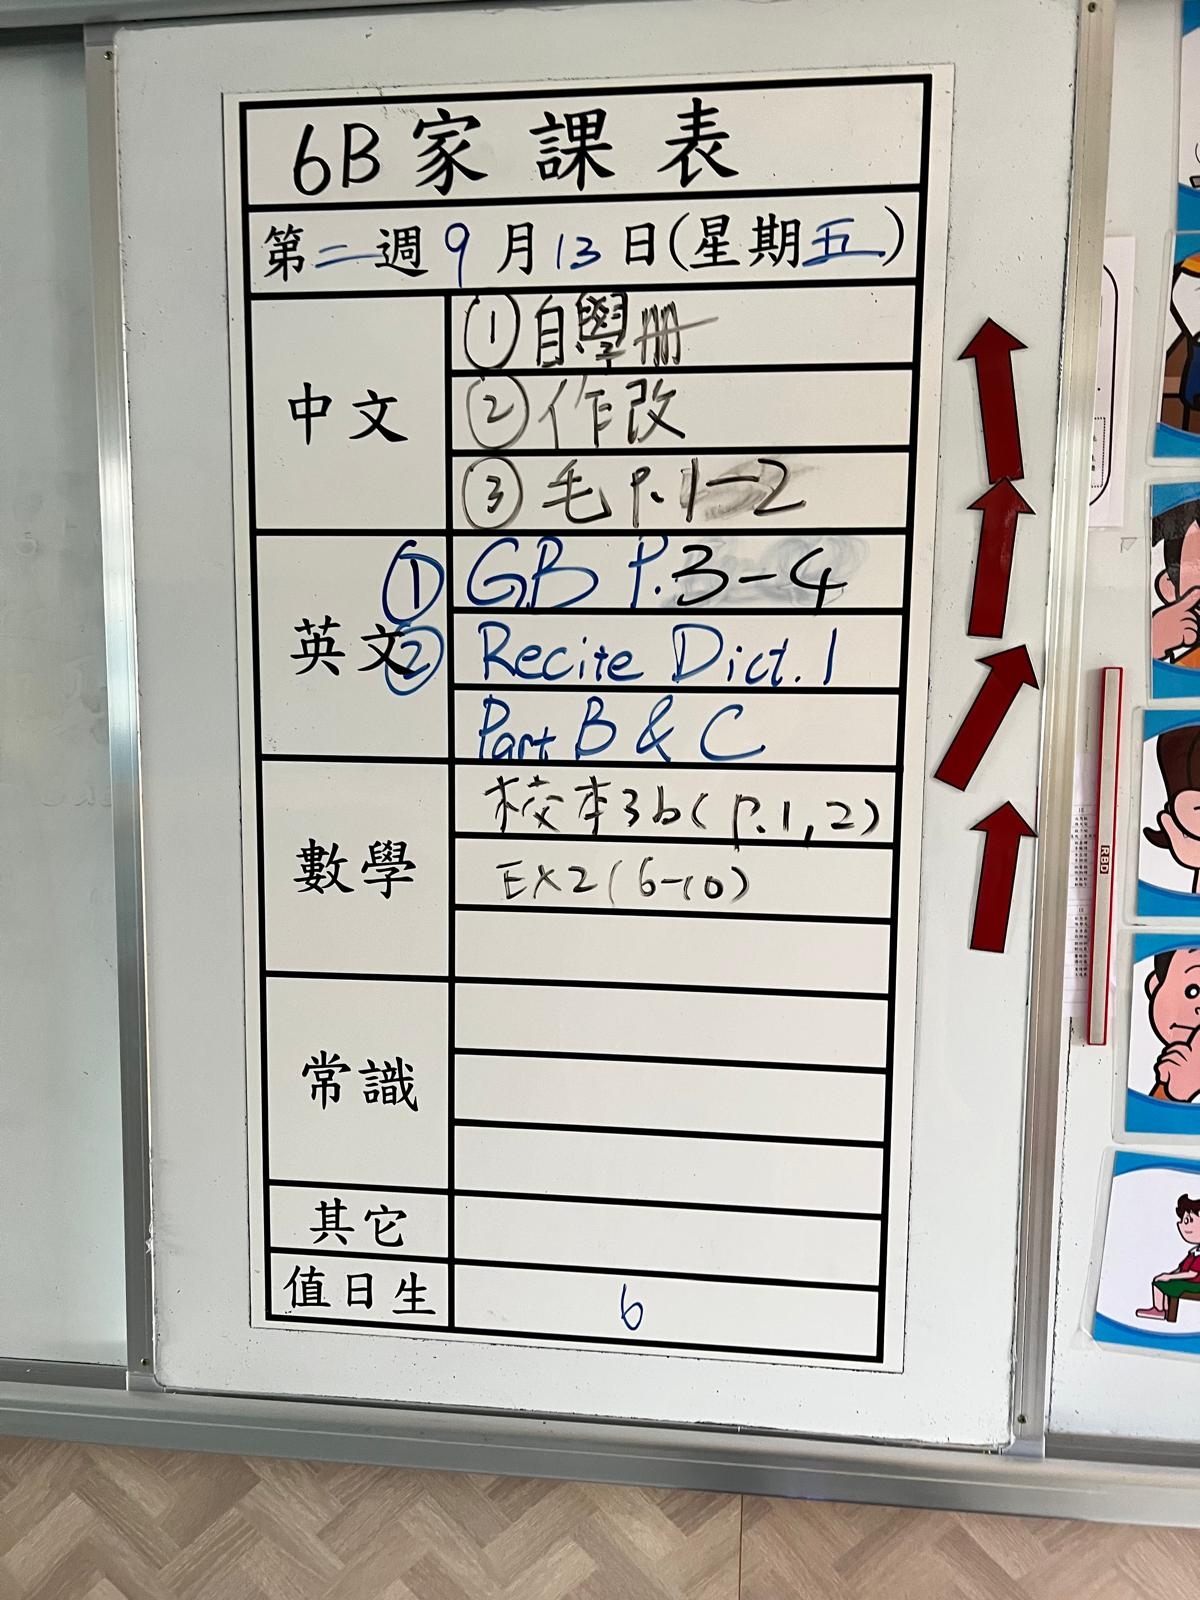 6B家課表
第二週9月13日(星期五)
中文
①自學冊
②作改
③毛 P.1-2
英文
① GB P.3-4
② Recite Dict.1
Part B & C
數學
校本3b(P.1,2)
EX2(6-10)
常識
其它
值日生
6
RBD